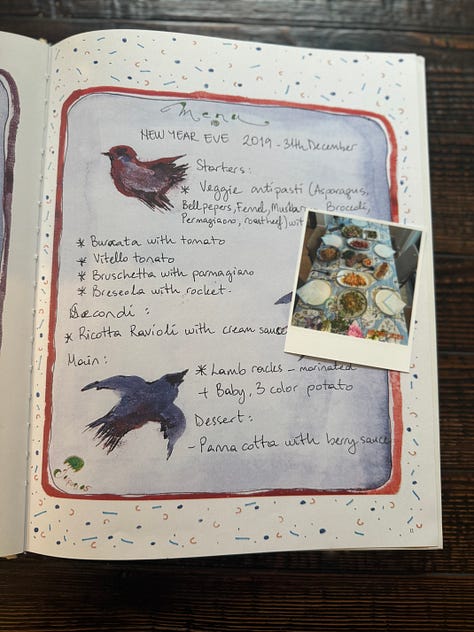 Menu
NEW YEAR EVE 2019 - 31th December
Starters:
* Veggie antipasti (Asparagus,
Bell pepers, Fennel, Broccoli,
Permagiano, roastbeef) wit
* Burrata with tomato
* Vitello tonato
* Bruschetta with parmagiano
* Breseola with rocket.
Secondi :
* Ricotta Ravioli with cream sauce
Main :
* Lamb racks - marinated
+ Baby, 3 color potato
Dessert :
- Panna cotta with berry sauce
11